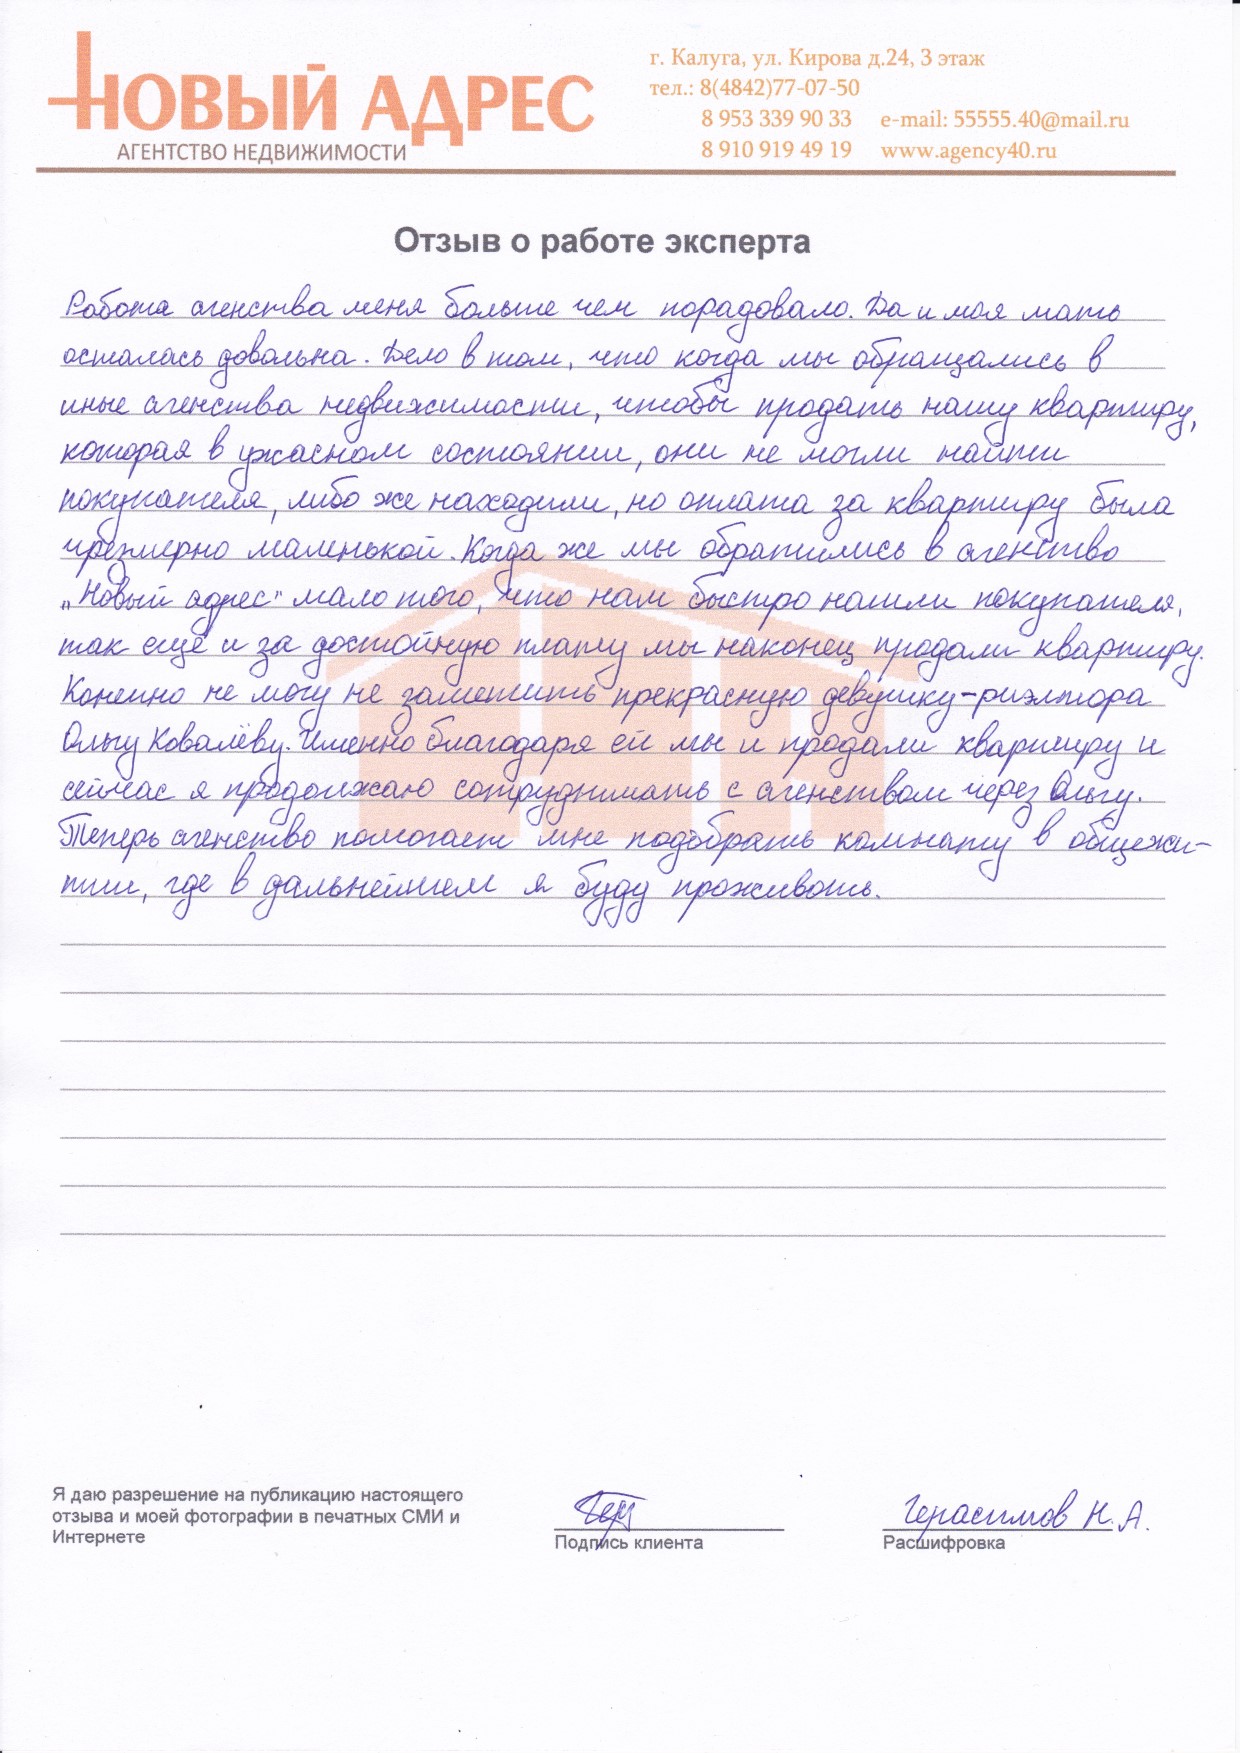 НОВЫЙ АДРЕС
АГЕНТСТВО НЕДВИЖИМОСТИ
г. Калуга, ул. Кирова д.24, 3 этаж
тел.: 8(4842)77-07-50
8 953 339 90 33 e-mail: 55555.40@mail.ru
8 910 919 49 19 www.agency40.ru
Отзыв о работе эксперта
Работа агенства меня больше чем порадовала. Да и моя мать
осталась довольна. Дело в том, что когда мы обращались в
иные агенства недвижимости, чтобы продать нашу квартиру,
которая в ужасном состоянии, они не могли найти
покупателя, либо же находили, но оплата за квартиру была
чрезмерно маленькой. Когда же мы обратились в агенство
„Новый адрес" мало того, что нам быстро нашли покупателя,
так ещё и за достойную плату мы наконец продали квартиру.
Конечно не могу не заметить прекрасную девушку-риэлтора
Ольгу Ковалёву. Именно благодаря ей мы и продали квартиру и
сейчас я продолжаю сотруднимать с агенством через Ольгу.
Теперь агенство помогает мне подобрать комнату в общежи-
тии, где в дальнейшем я буду проживать.
Я даю разрешение на публикацию настоящего
отзыва и моей фотографии в печатных СМИ и
Интернете
Подпись клиента
Герасимов Н.А.
Расшифровка